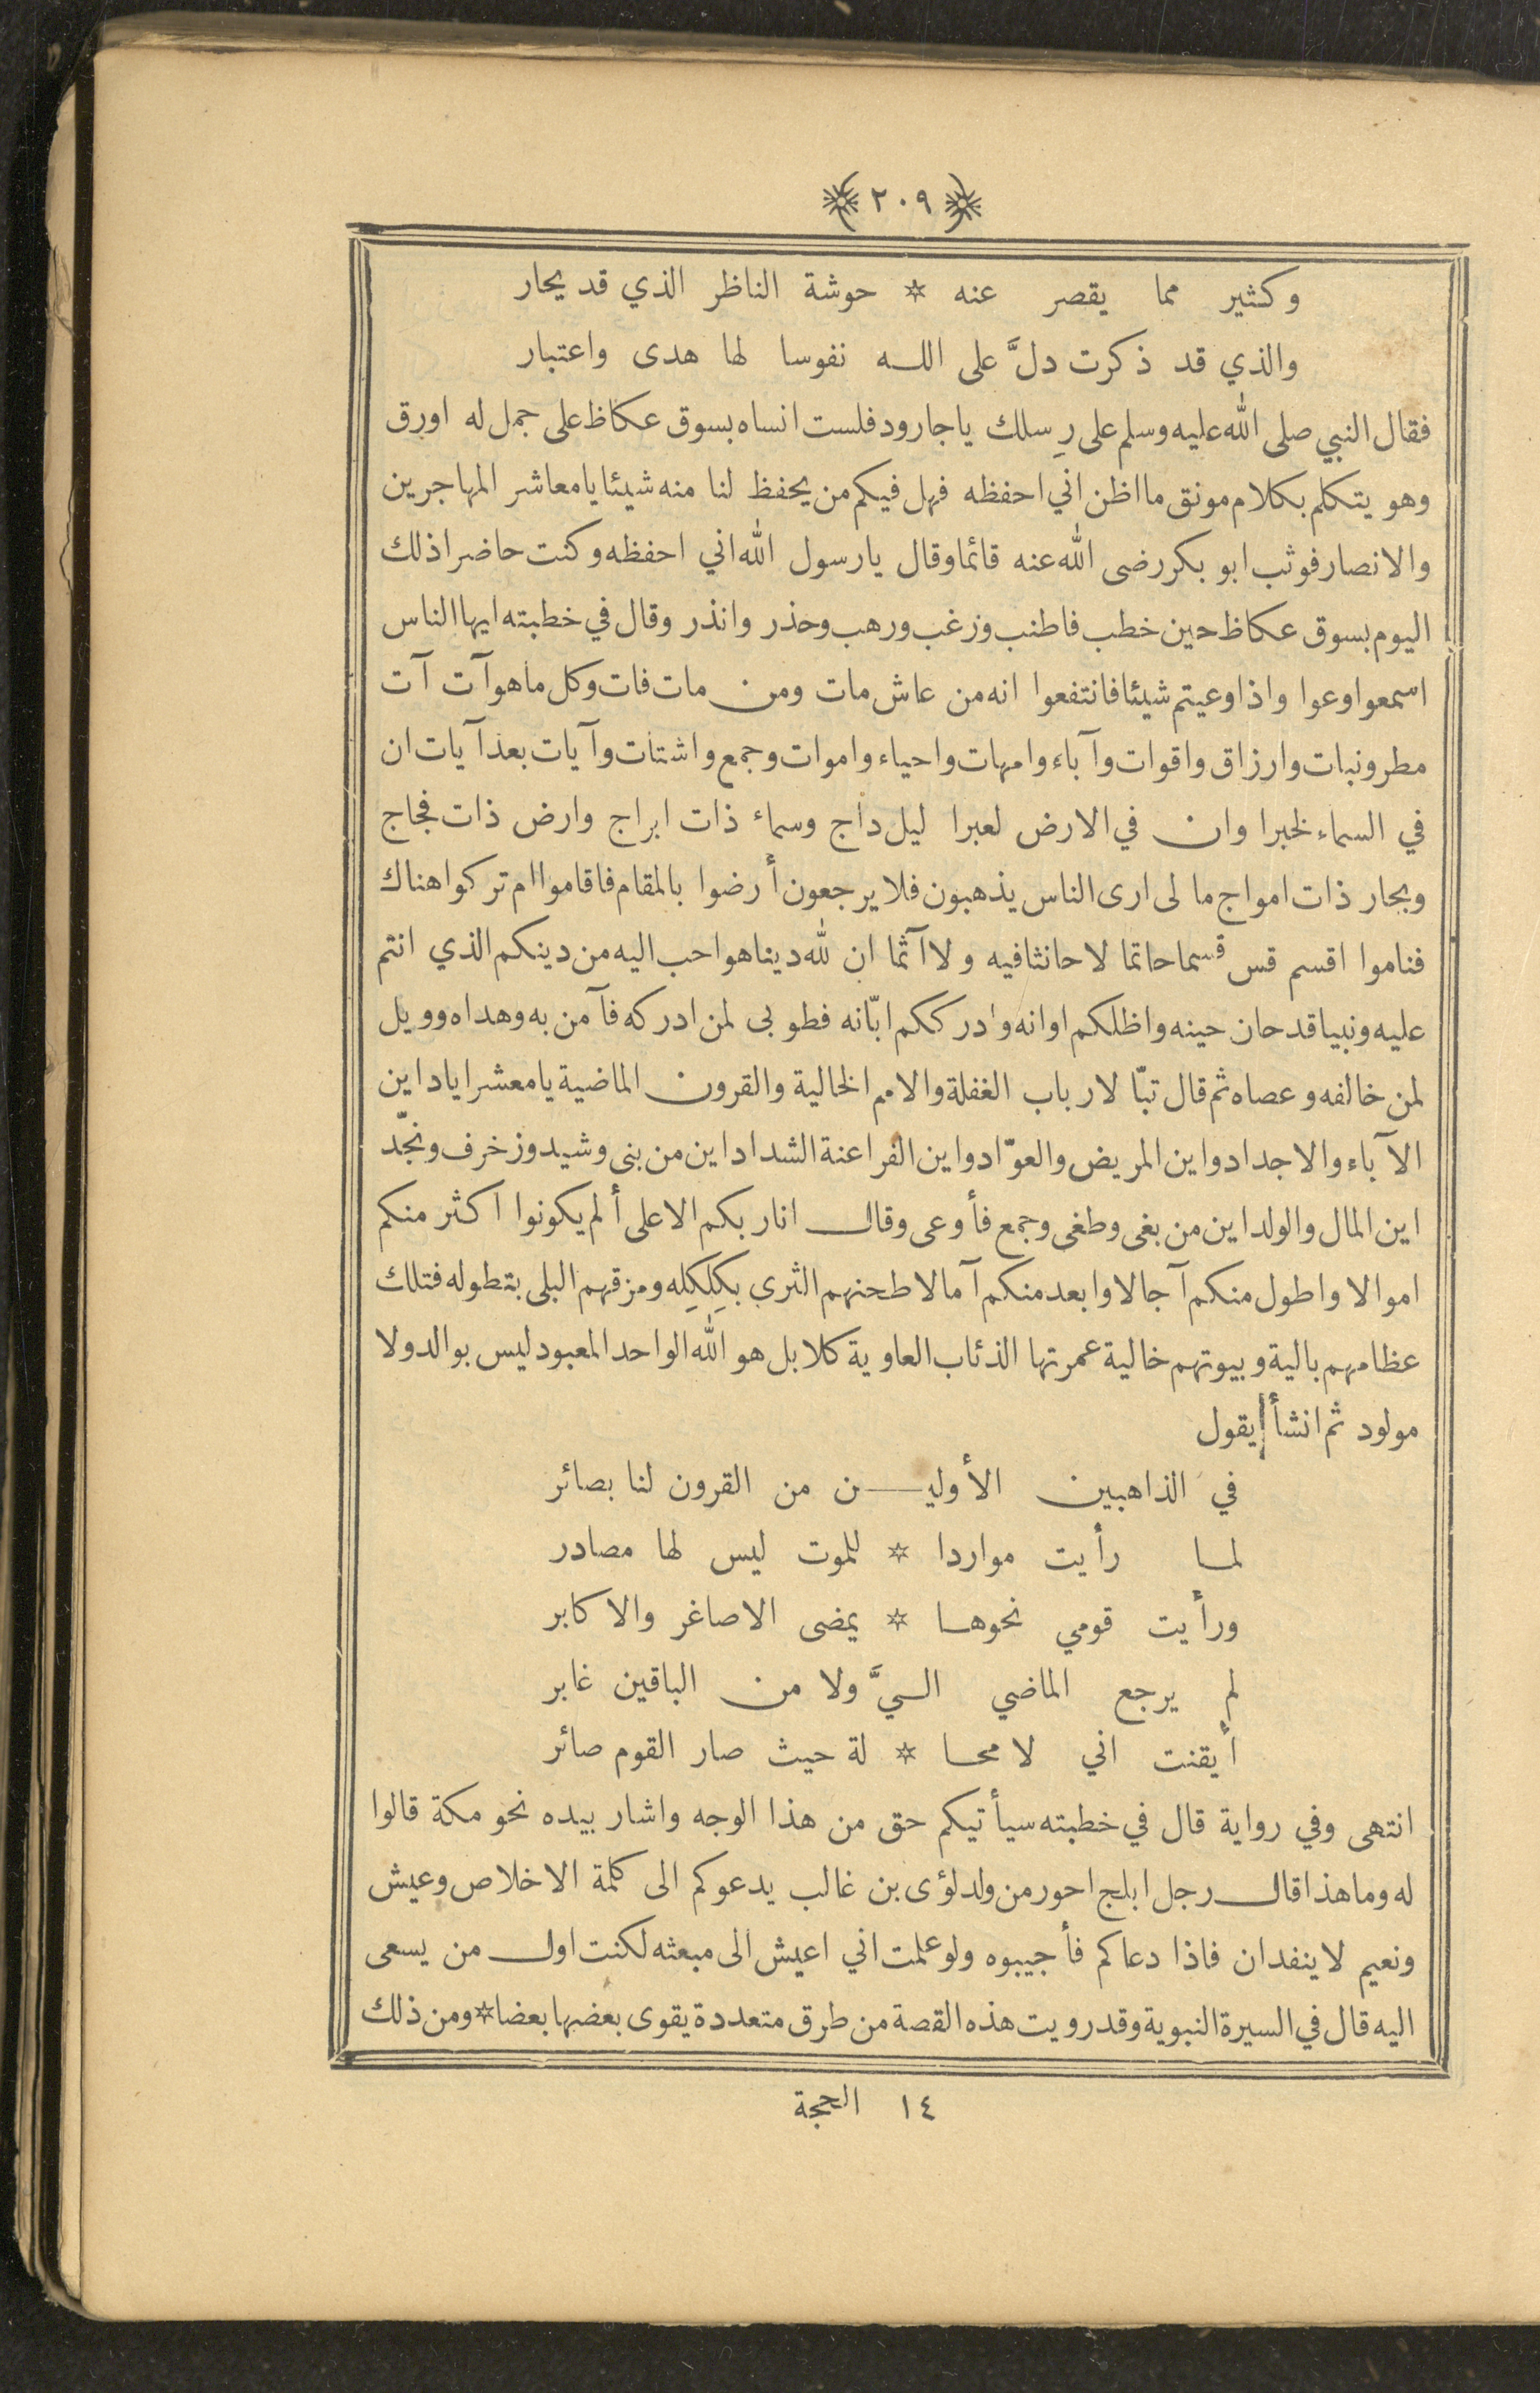 ٢٠٩
وكثير مما يقصر عنه * حوشة الناظر الذي قد يحار
والذي قد ذكرت دلَّ على اللـه نفوسا لها هدى واعتبار
فقال النبي صلى الله عليه وسلم على رِسلك ياجارود فلست انساه بسوق عكاظ على جمل له اورق
وهو يتكلم بكلام مونق ما اظن اني احفظه فهل فيكم من يحفظ لنا منه شيئا يا معاشر المهاجرين
والانصار فوثب ابو بكر رضى الله عنه قائما وقال يا رسول الله اني احفظه وكنت حاضرا ذلك
اليوم بسوق عكاظ حين خطب فاطنب ورغب ورهب وحذر وانذر وقال في خطبته ايها الناس
اسمعوا وعوا واذا وعيتم شيئا فانتفعوا انه من عاش مات ومن مات فات وكل ما هو آت آت
مطر ونبات وارزاق واقوات وآباء وامهات واحياء واموات وجمع واشتات وآيات بعد آيات ان
في السماء لخبرا وان في الارض لعبرا ليل داج وسماء ذات ابراج وارض ذات فجاج
وبحار ذات امواج ما لى ارى الناس يذهبون فلا يرجعون أرضوا بالمقام فاقاموا ام تركوا هناك
فناموا اقسم قس قسما حاتما لا حانثا فيه ولا آثما ان لله دينا هو احب اليه من دينكم الذي انتم
عليه ونبيا قد حان حينه واظلكم اوانه وادرككم ابّانه فطوبى لمن ادركه فآمن به وهداه وويل
لمن خالفه وعصاه ثم قال تبّا لارباب الغفلة والامم الخالية والقرون الماضية يا معشر اياد اين
الآباء والاجداد واين المريض والعوّاد واين الفراعنة الشداد اين من بنى وشيد وزخرف ونجّد
اين المال والولد اين من بغى وطغى وجمع فأوعى وقال انا ربكم الاعلى ألم يكونوا اكثر منكم
اموالا واطول منكم آجالا وابعد منكم آمالا طحنهم الثرى بكِلكِلِه ومزقهم البلى بتطوله فتلك
عظامهم بالية وبيوتهم خالية عمرتها الذئاب العاوية كلا بل هو الله الواحد المعبود ليس بوالد ولا
مولود ثم انشأ يقول
في الذاهبين الأوليـــن من القرون لنا بصائر
لمـا رأيت مواردا * للموت ليس لها مصادر
ورأيت قومي نحوهـا * يمضى الاصاغر والاكابر
لم يرجع الماضي الـيَّ ولا من الباقين غابر
أيقنت اني لا محـا * لة حيث صار القوم صائر
انتهى وفي رواية قال في خطبته سيأتيكم حق من هذا الوجه واشار بيده نحو مكة قالوا
له وما هذا قال رجل ابلج احور من ولد لؤى بن غالب يدعوكم الى كلمة الاخلاص وعيش
ونعيم لا ينفدان فاذا دعاكم فأجيبوه ولو علمت اني اعيش الى مبعثه لكنت اول من يسعى
اليه قال في السيرة النبوية وقد رويت هذه القصة من طرق متعددة يقوى بعضها بعضا * ومن ذلك
١٤ الحجة